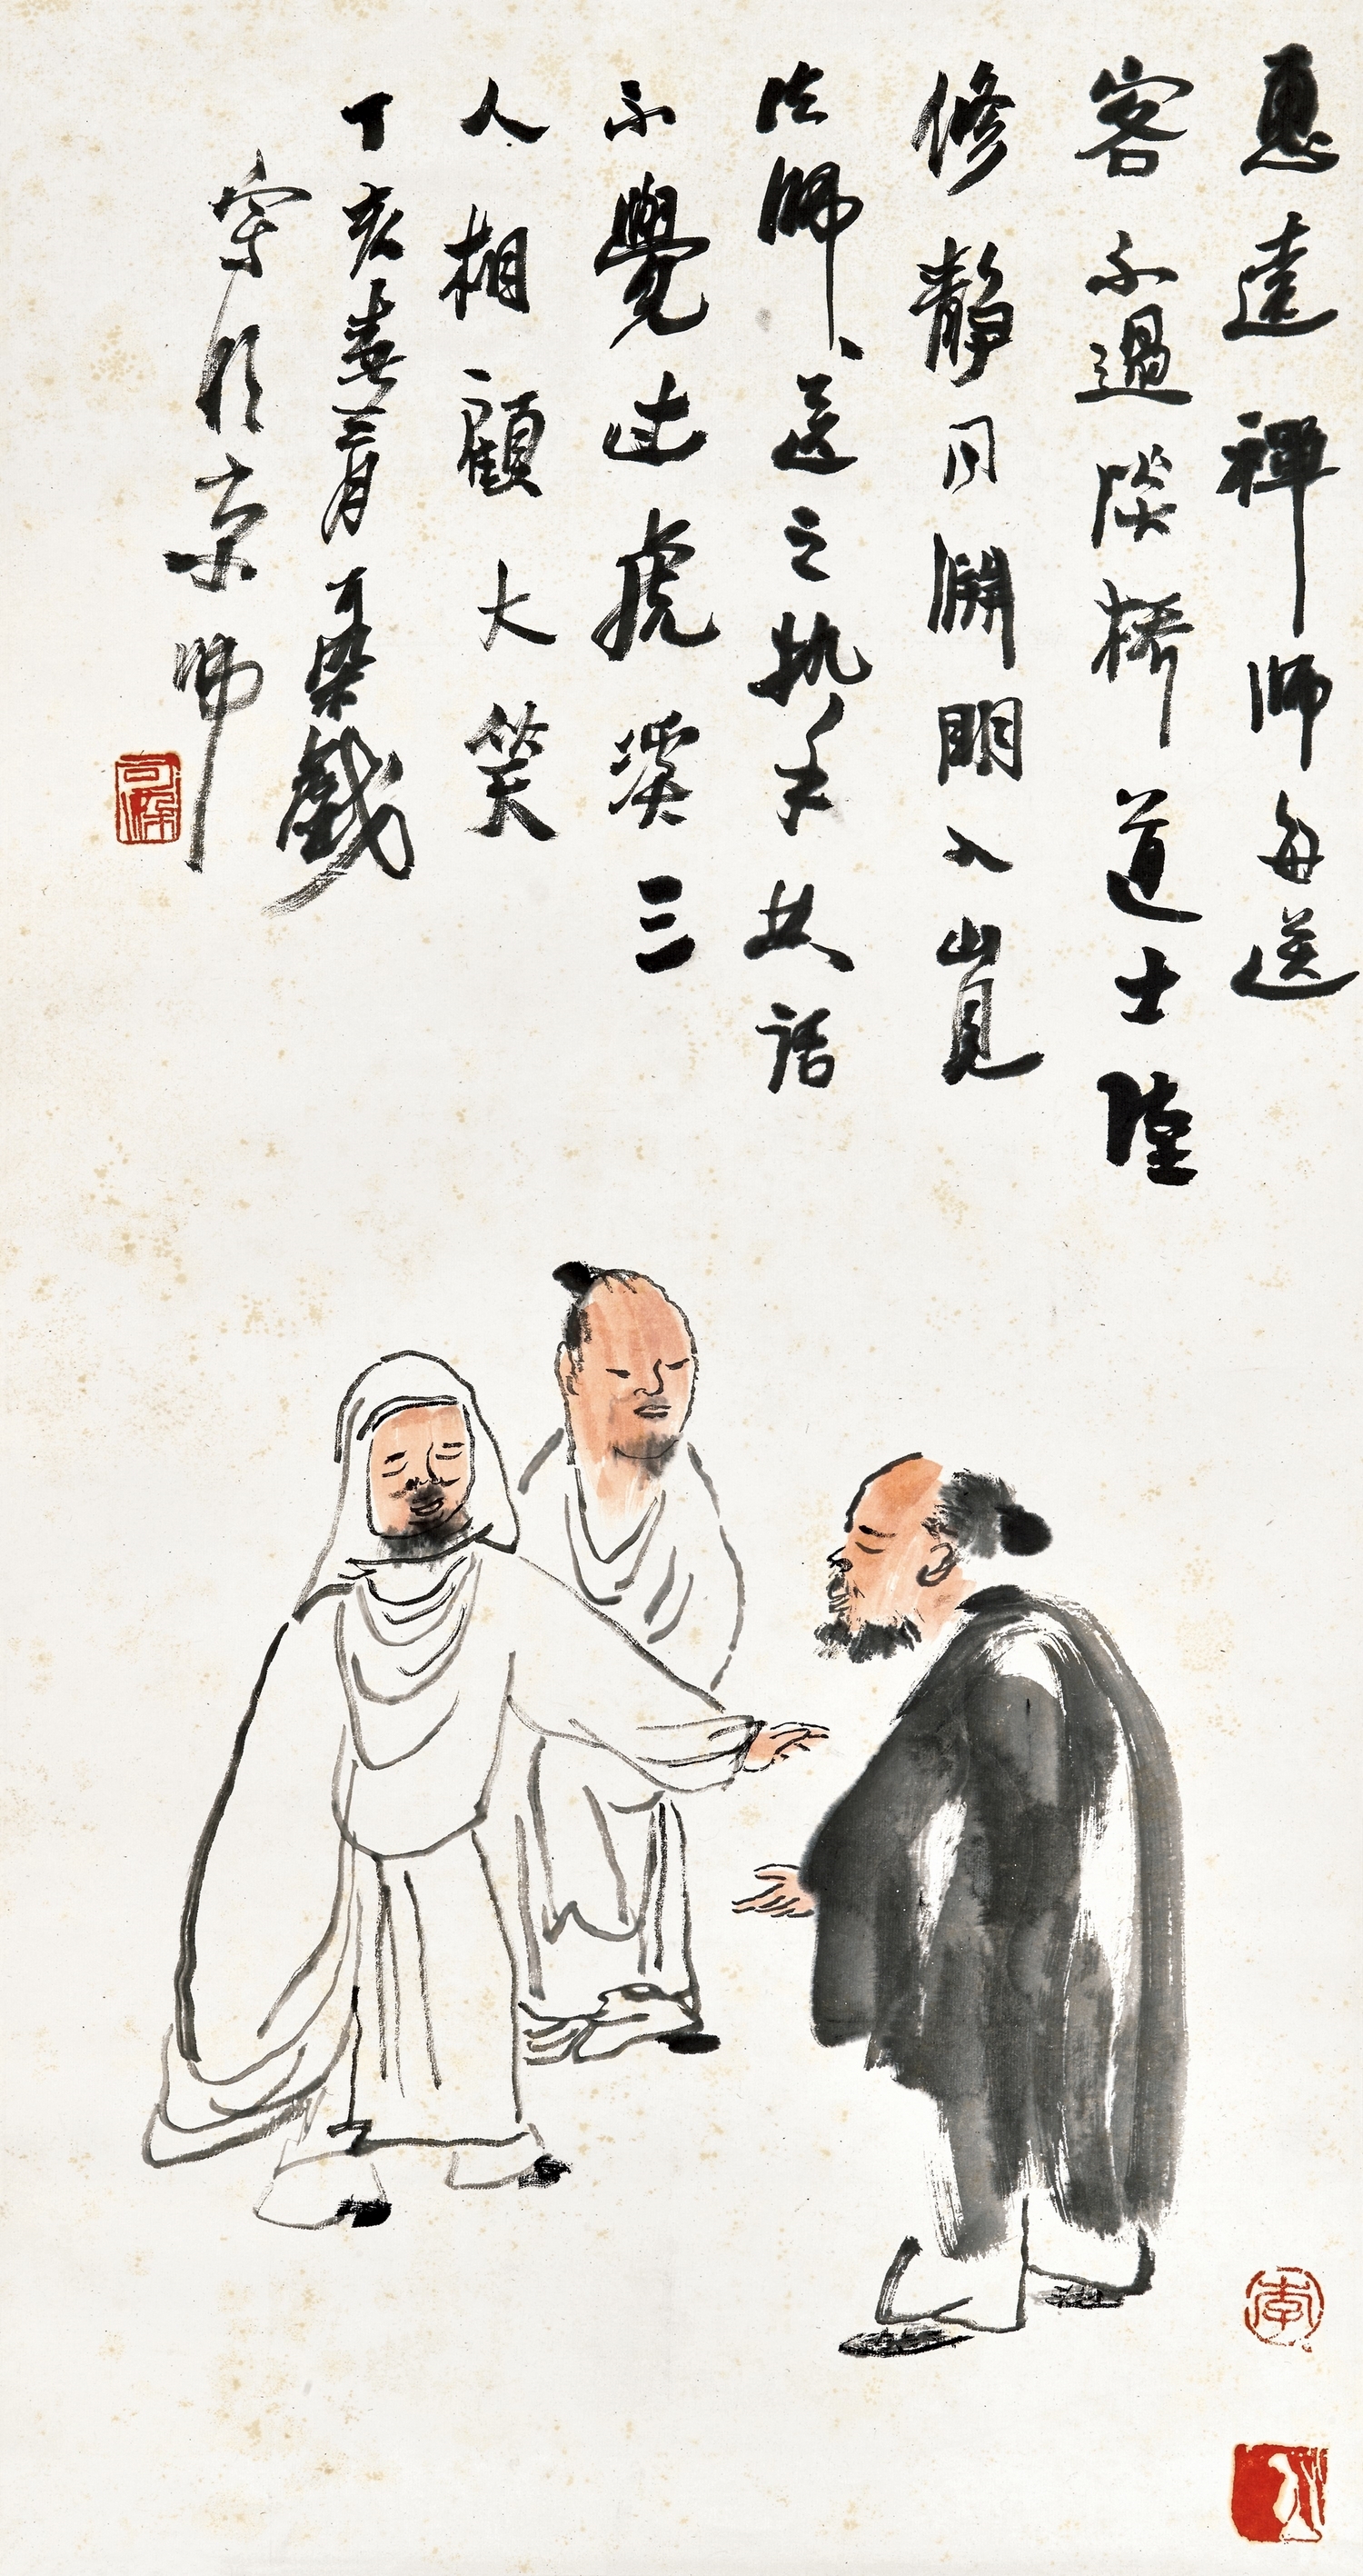 惠遠禪師每送
客不過溪橋道士陸
修靜同淵明入山見
法師、送之執手共話
不覺過虎溪三
人相顧大笑
丁亥春三月可染戲
寫於京師
可染
李